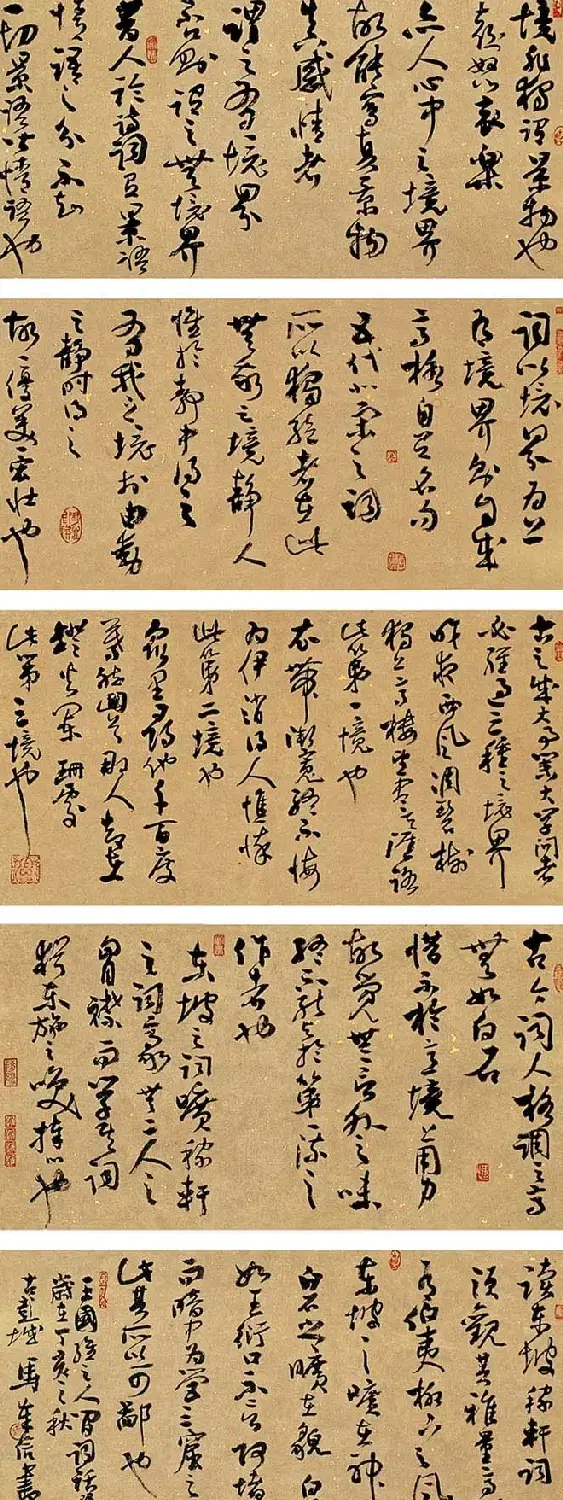 境非独谓景物也
喜怒哀樂
亦人心中之境界
故能寫真景物
真感情者
謂之有境界
否則謂之無境界
昔人論詩詞有景語
情語之分不知
一切景語皆情語也
词以境界为上
有境界則自成
高格自有名句
五代北宋之詞
所以獨絕者在此
無我之境静人
惟於静中得之
有我之境於由動
之静时得之
故一優美一宏壮也
古之成大事業大学问者
必經過三種之境界
昨夜西風凋碧樹
獨上高樓望盡天涯路
此第一境也
衣帶漸寬終不悔
为伊消得人憔悴
此第二境也
众里尋他千百度
驀然回首那人却在
燈火闌珊處
此第三境也
古今詞人格調之高
無如白石
惜不於意境上用力
故觉無言外之味
終不能與於第一流之
作者也
東坡之词曠稼軒
之词豪無二人之
胸襟而学其词
猶東施之效捧心也
读東坡稼軒词
須觀其雅量高
有伯夷柳下之風
東坡之曠在神
白石之曠在貌白
如王衍口不言阿堵
而暗中为营三窟之
此其所以可鄙也
王國維之人间词話
歲在丁亥之秋
古彭城馬